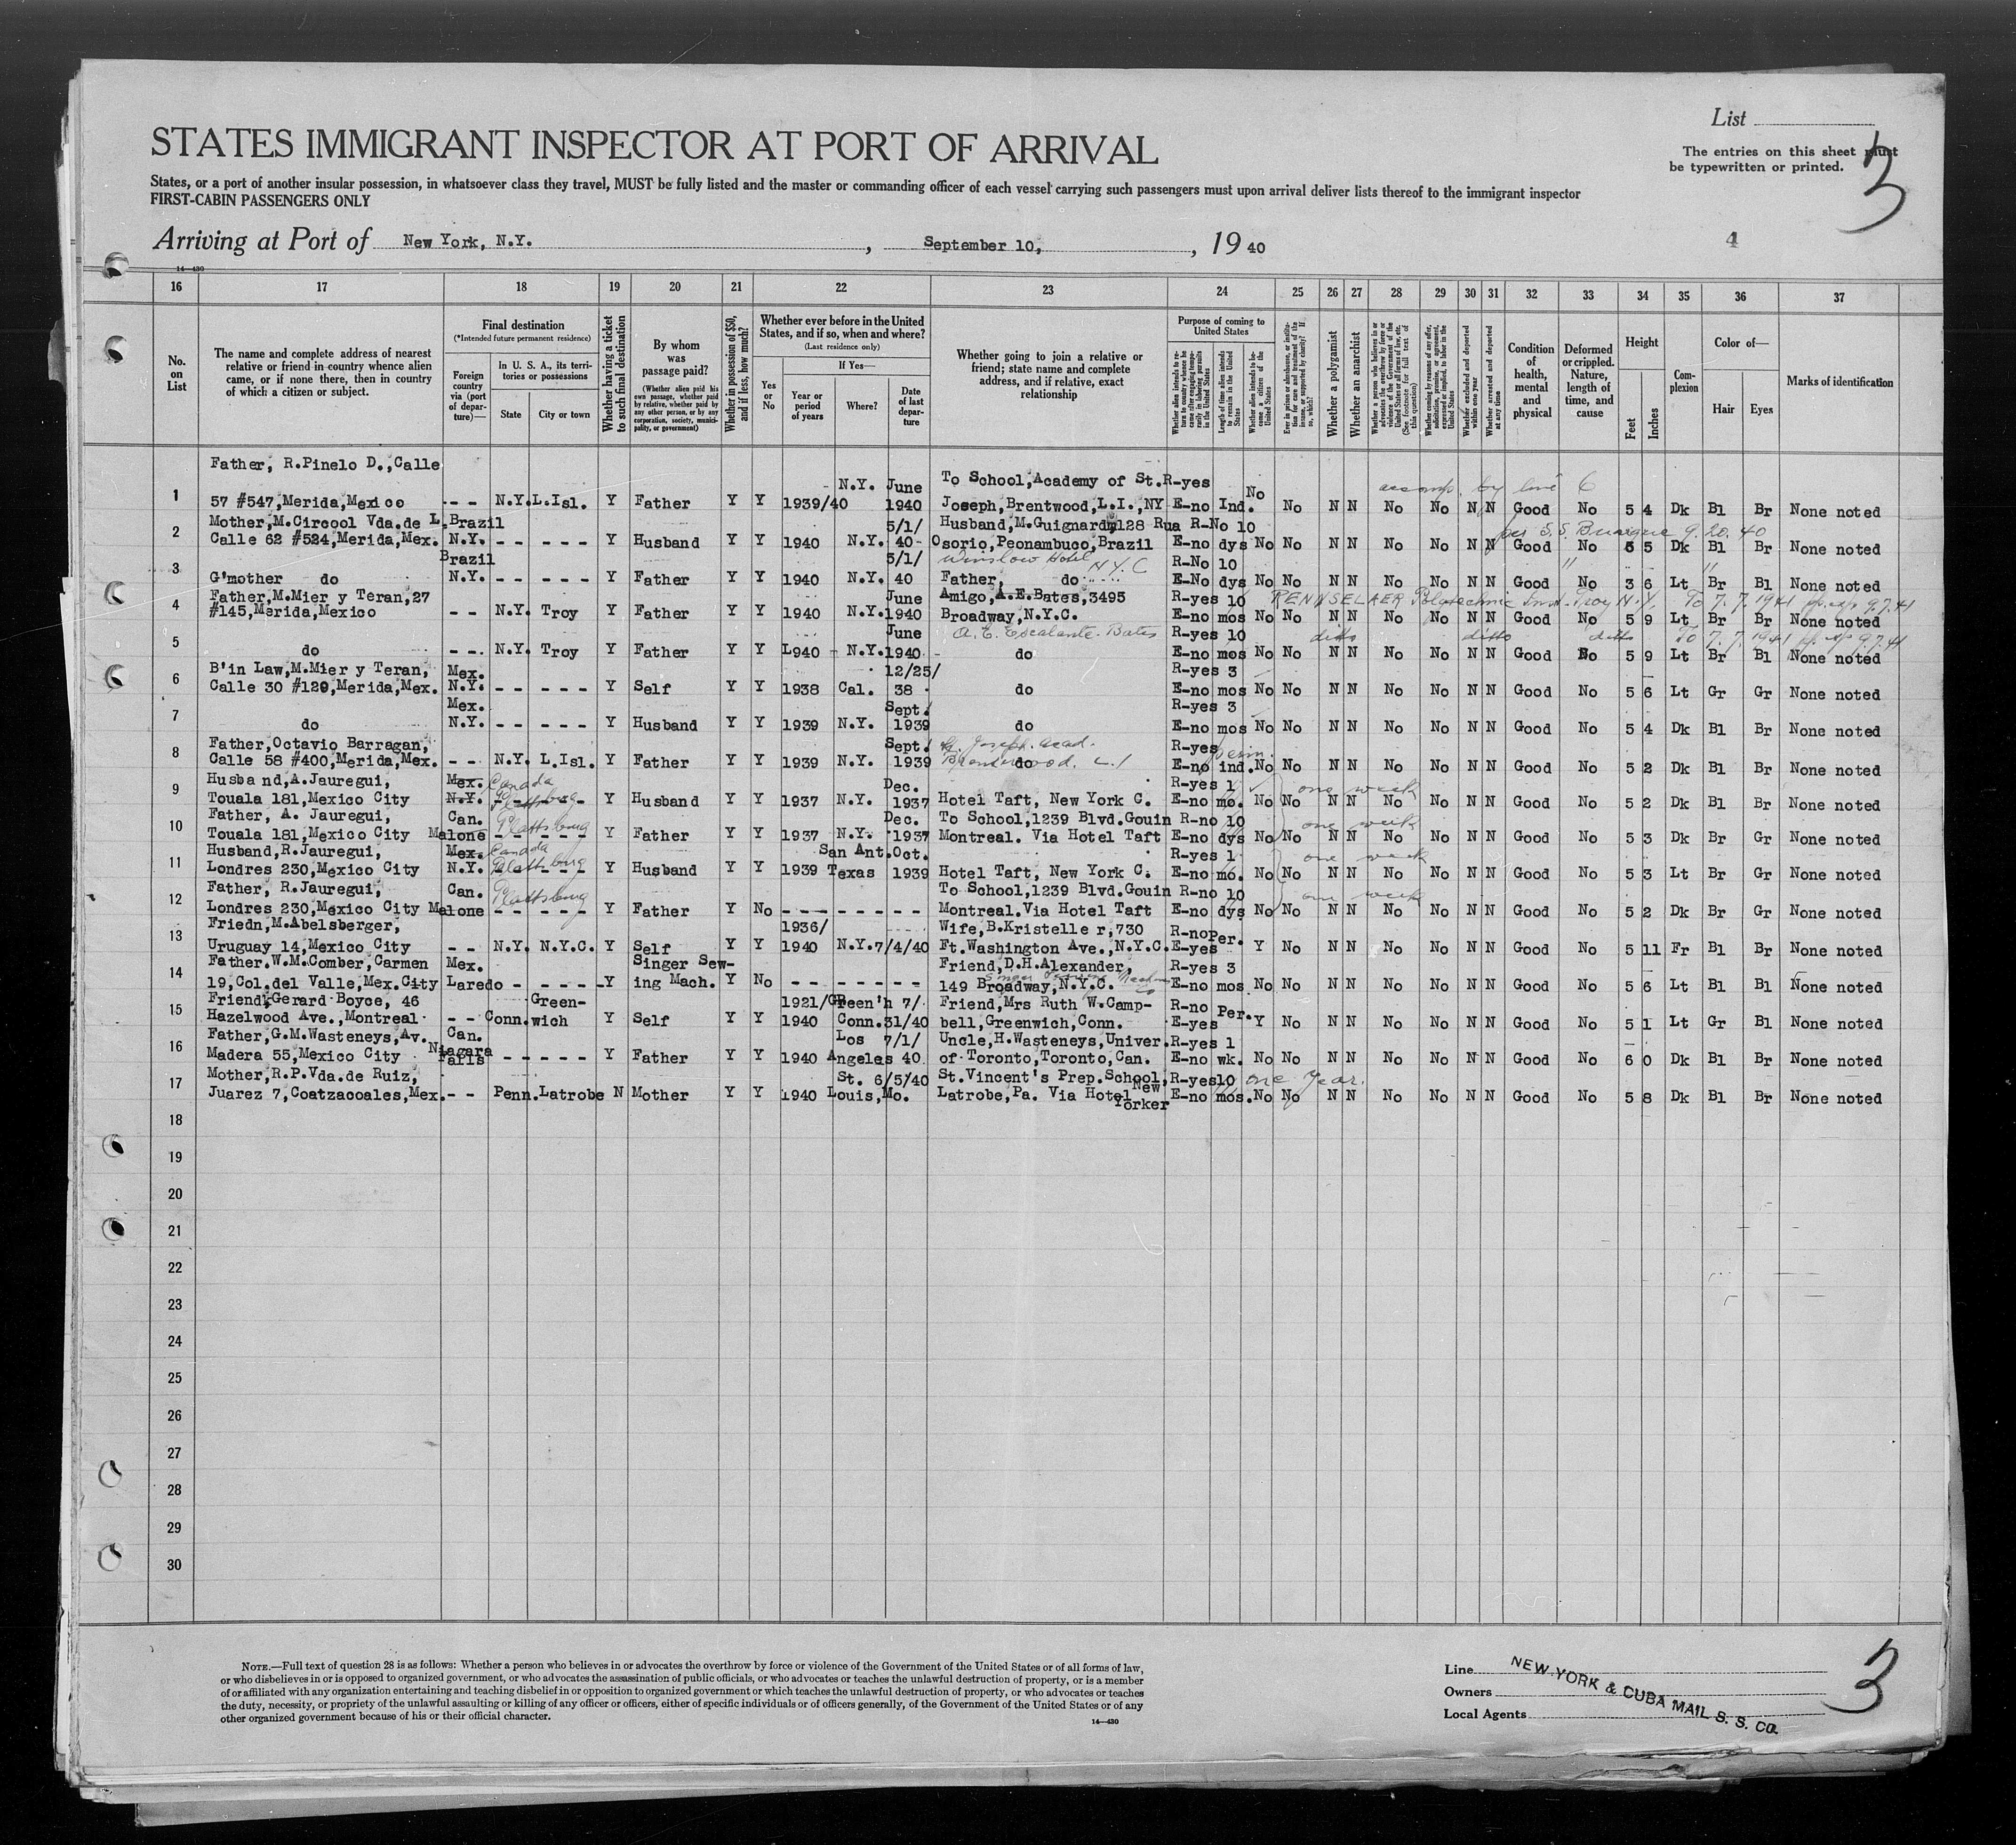 List
The entries on this sheet must
be typewritten or printed.
3
STATES IMMIGRANT INSPECTOR AT PORT OF ARRIVAL
States, or a port of another insular possession, in whatsoever class they travel, MUST be fully listed and the master or commanding officer of each vessel carrying such passengers must upon arrival deliver lists thereof to the immigrant inspector
FIRST-CABIN PASSENGERS ONLY
Arriving at Port of New York, N.Y. , September 10, , 19 40
4
14—430
16 17 18 19 20 21 22 23 24 25 26 27 28 29 30 31 32 33 34 35 36 37
No. on List
The name and complete address of nearest relative or friend in country whence alien came, or if none there, then in country of which a citizen or subject.
Final destination
(*Intended future permanent residence)
Foreign country via (port of departure)—
In U. S. A., its territories or possessions
State City or town
Whether having a ticket to such final destination
By whom was passage paid?
(Whether alien paid his own passage, whether paid by relative, whether paid by any other person, or by any corporation, society, municipality, or government)
Whether in possession of $50, and if less, how much?
Whether ever before in the United States, and if so, when and where?
(Last residence only)
Yes or No
If Yes—
Year or period of years
Where?
Date of last departure
Whether going to join a relative or friend; state name and complete address, and if relative, exact relationship
Purpose of coming to United States
Whether alien intends to return to country whence he came after engaging temporarily in laboring pursuits in the United States
Length of time alien intends to remain in the United States
Whether alien intends to become a citizen of the United States
Ever in prison or almshouse, or institution for care and treatment of the insane, or supported by charity? If so, which?
Whether a polygamist
Whether an anarchist
Whether a person who believes in or advocates the overthrow by force or violence of the Government of the United States or all forms of law, etc. (See footnote for full text of this question)
Whether coming by reasons of any offer, solicitation, promise, or agreement, expressed or implied, to labor in the United States
Whether excluded and deported within one year
Whether arrested and deported at any time
Condition of health, mental and physical
Deformed or crippled. Nature, length of time, and cause
Height—
Feet Inches
Complexion
Color of—
Hair Eyes
Marks of identification
Father, R.Pinelo D.,Calle N.Y. June To School,Academy of St. R-yes No accomp. by line 6
1 57 #547,Merida,Mexico - - N.Y. L.Isl. Y Father Y Y 1939/40 1940 Joseph,Brentwood,L.I.,NY E-no Ind. No N N No No N N Good No 5 4 Dk Bl Br None noted
Mother,M.Circool Vda.de L. Brazil 5/1/ Husband,M.Guignard,128 Rua R-No 10 per S.S. 9.20.40
2 Calle 62 #524,Merida,Mex. N.Y. - - - - - Y Husband Y Y 1940 N.Y. 40 Osorio,Peonambuco,Brazil E-no dys No No N N No No N N Good No 5 5 Dk Bl Br None noted
Brazil 5/1/ Winslow Hotel N.Y.C R-No 10 " "
3 G'mother do N.Y. - - - - - Y Father Y Y 1940 N.Y. 40 Father, do E-No dys No No N N No No N N Good No 3 6 Lt Br Bl None noted
Father,M.Mier y Teran,27 June Amigo,A.E.Bates,3495 R-yes 10 RENNSELAER Polotechnic Inst. Troy N.Y. To 7.7.1941 pp. exp 9.7.41
4 #145,Merida,Mexico - - N.Y. Troy Y Father Y Y 1940 N.Y. 1940 Broadway,N.Y.C. E-no mos No No N N No No N N Good No 5 9 Lt Br Br None noted
June A.E. Escalante-Bates R-yes 10 ditto ditto ditto To 7.7.1941 pp. exp 9.7.41
5 do - - N.Y. Troy Y Father Y Y L940 - N.Y. 1940 do E-no mos No No N N No No N N Good No 5 9 Lt Br Bl None noted
B'in Law,M.Mier y Teran, Mex. 12/25/ R-yes 3
6 Calle 30 #129,Merida,Mex. N.Y. - - - - - Y Self Y Y 1938 Cal. 38 do E-no mos No No N N No No N N Good No 5 6 Lt Gr Gr None noted
Mex. Sept. R-yes 3
7 do N.Y. - - - - - Y Husband Y Y 1939 N.Y. 1939 do E-no mos No No N N No No N N Good No 5 4 Dk Bl Br None noted
Father,Octavio Barragan, Sept. St. Joseph. Acad. R-yes perm.
8 Calle 58 #400,Merida,Mex. - - N.Y. L.Isl. Y Father Y Y 1939 N.Y. 1939 do Brentwood. L.I E-no ind. No No N N No No N N Good No 5 2 Dk Bl Br None noted
Husband,A.Jauregui, Mex. Canada Dec. R-yes 1 one week
9 Touala 181,Mexico City N.Y. Plattsburg Y Husband Y Y 1937 N.Y. 1937 Hotel Taft, New York C. E-no mo. No No N N No No N N Good No 5 2 Dk Bl Br None noted
Father, A. Jauregui, Can. Plattsburg Dec. To School,1239 Blvd.Gouin R-no 10 one week
10 Touala 181,Mexico City Malone - - - - - Y Father Y Y 1937 N.Y. 1937 Montreal. Via Hotel Taft E-no dys No No N N No No N N Good No 5 3 Dk Br Gr None noted
Husband,R.Jauregui, Mex. Canada San Ant. Oct. R-yes 1 one week
11 Londres 230,Mexico City N.Y. Plattsburg Y Husband Y Y 1939 Texas 1939 Hotel Taft, New York C. E-no mo. No No N N No No N N Good No 5 3 Lt Br Gr None noted
Father, R.Jauregui, Can. Plattsburg To School,1239 Blvd.Gouin R-no 10 one week
12 Londres 230,Mexico City Malone - - - - - Y Father Y No - - - - - - - - Montreal.Via Hotel Taft E-no dys No No N N No No N N Good No 5 2 Dk Br Gr None noted
Friedn,M.Abelsberger, 1936/ Wife,B.Kristelle r,730 R-no Per.
13 Uruguay 14,Mexico City - - N.Y. N.Y.C. Y Self Y Y 1940 N.Y. 7/4/40 Ft.Washington Ave.,N.Y.C. E-yes Y No N N No No N N Good No 5 11 Fr Bl Br None noted
Father.W.M.Comber,Carmen Mex. Singer Sew- Friend,D.H.Alexander, R-yes 3
14 19,Col.del Valle,Mex.City Laredo - - - - - Y ing Mach. Y No - - - - - - - 149 Broadway,N.Y.C. E-no mos No No N N No No N N Good No 5 6 Lt Bl Bl None noted
Friend,Gerard Boyce, 46 Green- 1921/ Green'h 7/ Friend,Mrs Ruth W.Camp- R-no Per.
15 Hazelwood Ave.,Montreal - - Conn. wich Y Self Y Y 1940 Conn. 31/40 bell,Greenwich,Conn. E-yes Y No N N No No N N Good No 5 1 Lt Gr Bl None noted
Father,G.M.Wasteneys,Av. Can. Niagara Los 7/1/ Uncle,H.Wasteneys,Univer. R-yes 1
16 Madera 55,Mexico City Falls - - - - - Y Father Y Y 1940 Angeles 40 of Toronto,Toronto,Can. E-no wk. No No N N No No N N Good No 6 0 Dk Bl Br None noted
Mother,R.P.Vda.de Ruiz, St. 6/5/40 St.Vincent's Prep.School, R-yes 10 one year.
17 Juarez 7,Coatzacoales,Mex. - - Penn. Latrobe N Mother Y Y 1940 Louis,Mo. Latrobe,Pa. Via Hotel New Yorker E-no mos. No No N N No No N N Good No 5 8 Dk Bl Br None noted
18
19
20
21
22
23
24
25
26
27
28
29
30
NOTE.—Full text of question 28 is as follows: Whether a person who believes in or advocates the overthrow by force or violence of the Government of the United States or of all forms of law,
or who disbelieves in or is opposed to organized government, or who advocates the assassination of public officials, or who advocates or teaches the unlawful destruction of property, or is a member
of or affiliated with any organization entertaining and teaching disbelief in or opposition to organized government or which teaches the unlawful destruction of property, or who advocates or teaches
the duty, necessity, or propriety of the unlawful assaulting or killing of any officer or officers, either of specific individuals or of officers generally, of the Government of the United States or of any
other organized government because of his or their official character.
14—430
Line
Owners
Local Agents
NEW YORK & CUBA MAIL S. S. CO.
3